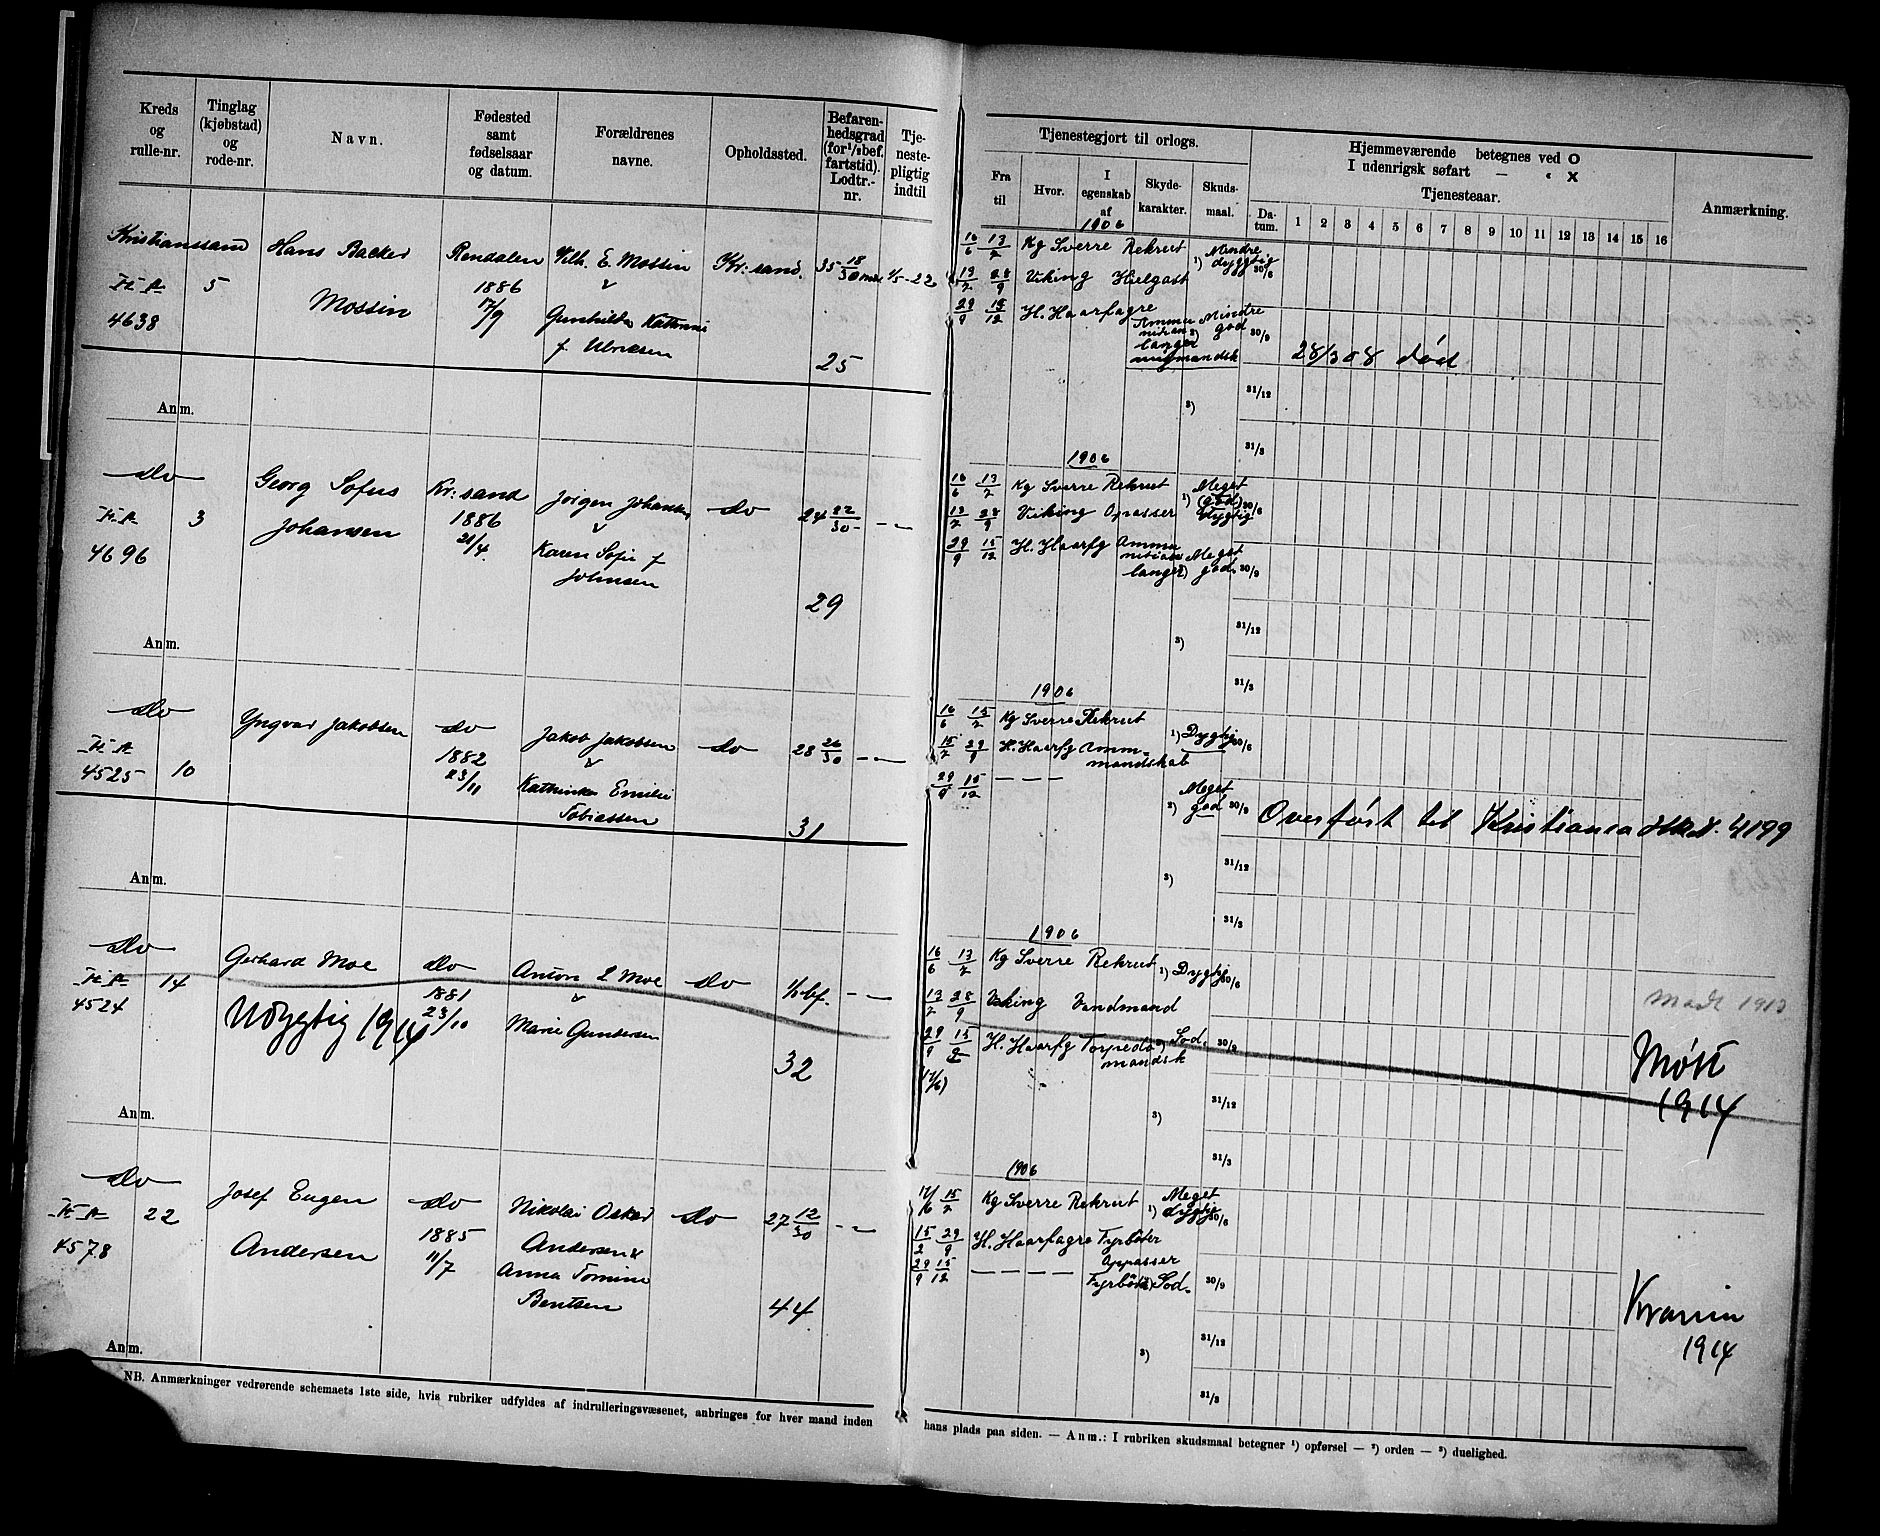 Kreds og rulle-nr.
Tinglag (kjøbstad) og rode-nr.
Navn.
Fødested samt fødselsaar og datum.
Forældrenes navne.
Opholdssted.
Befaren-hedsgrad (for 1/2 bef. fartstid). Lodtr.-nr.
Tje-neste-pligtig indtil
Tjenestegjort til orlogs.
Fra til
Hvor.
I egenskab af
Skyde-karakter.
Skuds-maal.
Hjemmeværende betegnes ved O
I udenrigsk søfart — " X
Tjenesteaar.
Da-tum. 1 2 3 4 5 6 7 8 9 10 11 12 13 14 15 16
Anmærkning.
Kristianssand
5
4638
Hans Backer
Mossin
Rendalen
1886
17/9
Vilh. E. Mossin
Gunhilda Kathrine
f Ulriksen
Kr:sand.
35 18/30 mdr
25
1/5-22
1906
16/6 13/7 Kg Sverre Rekrut 1) Mindre dygtig 30/6
13/7 28/9 Viking Hielgast
29/9 15/12 H. Haarfagre Ammu nitions langer mandsk 2) Mindre god 30/9
28/3 08 død
31/12
3)
31/3
Anm.
do
3
4696
Georg Sofus
Johansen
Kr:sand
1886
21/4
Jørgen Johansen
Karen Sofie f
Johnsen
do
24 22/30
29
1906
16/6 13/7 Kg Sverre Rekrut 1) Meget (god) dygtig 30/6
13/7 28/9 Viking Opasser
29/9 15/12 H. Haarfg Ammu nitions langer 2) Meget god 30/9
31/12
3)
31/3
Anm.
do
10
4525
Yngvar Jakobsen
do
1882
23/11
Jakob Jakobsen
Kathinka Emilie
Tobiassen
do
28 26/30
31
1906
16/6 15/7 Kg Sverre Rekrut 1) Dygtig 30/6
15/7 29/9 H. Haarfg Amm. mandskab
29/9 15/12 — — — 2) Meget god 30/9
Overført til Kristiania 4199
31/12
3)
31/3
Anm.
do
14
4524
Gerhard Moe
Udygtig 1914
do
1881
23/10
Anton L Moe
Marie Gundersen
do
1/2 bf.
32
1906
16/6 13/7 Kg Sverre Rekrut 1) Dygtig 30/6
13/7 28/9 Viking Vandmand
29/9 15/12 H. Haarfg Torpedo mandsk 2) God. 30/9
(17/6)
Mødt 1913
Møtt
1914
31/12
3)
31/3
Anm.
do
22
4578
Josef Eugen
Andersen
do
1885
11/7
Nikolai Oskar
Andersen &
Anna Tomine
Bentsen
do
27 12/30
44
1906
17/6 15/7 Kg Sverre Rekrut 1) Meget dygtig 30/6
15/7 29/9 H. Haarfagre Fyrbøter Oppasser
29/9 15/12 — — — — Fyrbøter 2) God. 30/9
1914
31/12
3)
31/3
Anm.
NB. Anmærkninger vedrørende schemaets 1ste side, hvis rubriker udfyldes af indrulleringsvæsenet, anbringes for hver mand inden
hans plads paa siden. — Anm.: I rubriken skudsmaal betegner 1) opførsel — 2) orden — 3) duelighed.